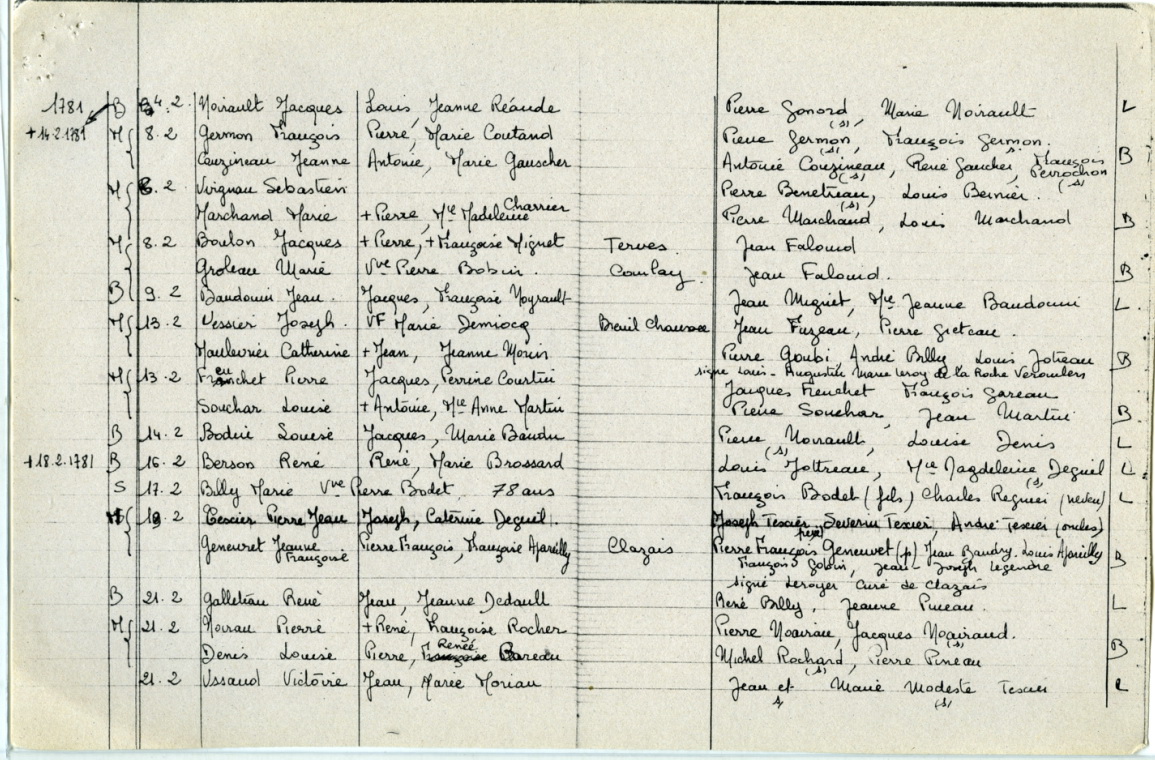 1781 B 4.2 Noirault Jacques Louis, Jeanne Réaude Pierre Gonord, Marie Noirault L
+14.2.1781 M 8.2 Germon François Pierre, Marie Coutand Pierre Germon (s), François Germon.
Couzineau Jeanne Antoine, Marie Gauscher Antoine Couzineau (s), René Gaucher, François Perrochon (s) B
M 8.2 Vrignau Sébastien Pierre Benetreau, Louis Bernier.
Marchand Marie + Pierre, Mie Madeleine Charrier Pierre Marchaud (s), Louis Marchand B
M 8.2 Boulon Jacques + Pierre, + Françoise Mignet Terves Jean Faloud
Groleau Marie Vve Pierre Bobin. Coulay Jean Faloud. B
B 9.2 Baudouin Jean. Jacques, Françoise Noyrault Jean Mignet, Mie Jeanne Baudouin L
M 13.2 Vessier Joseph. VF Marie Demiocq Breuil Chaussée Jean Fuzeau, Pierre
Maulevrier Catherine + Jean, Jeanne Morin Pierre Goubi André Billy, Louis B
M 13.2 Freuchet Pierre Jacques, Perrine Courtin signe Louis-Augustin Marie Leroy de la Roche
Jacques Freuchet François Gareau
Souchar Louise + Antoine, Mie Anne Martin Pierre Souchar, Jean Martin B
B 14.2 Bodin Louise Jacques, Marie Baudu Pierre Noirault (s), Louise Denis L
+18.2.1781 B 16.2 Berson René René, Marie Brossard Louis Jottreau, Mie Magdeleine Deguil (s) L
S 17.2 Billy Marie Vve Pierre Bodet, 78 ans François Bodet (fils) Charles Regnier (neveu) L
M 19.2 Texier Pierre Jean Joseph, Caterine Deguil. Joseph Texier, Severin Texier (frère), André Texier (oncles)
Geneuvet Jeanne Françoise Pierre François, Françoise Apailly Clazais Pierre François Geneuvet (p) Jean Baudry. Louis Apailly B
François Gobin, Jean-Joseph Legendre
signé Leroyer Curé de Clazais
B 21.2 Galleteau René Jean, Jeanne Dedault René Billy, Jeanne Pineau. L
M 21.2 Noirau Pierre + René, Françoise Rocher Pierre Noairau, Jacques Noairaud (s).
Denis Louise Pierre, Renée Bareau Michel Rochard (s), Pierre Pineau B
21.2 Ussaud Victoire Jean, Marie Moriau Jean et (s) Marie Modeste (s) Texier L